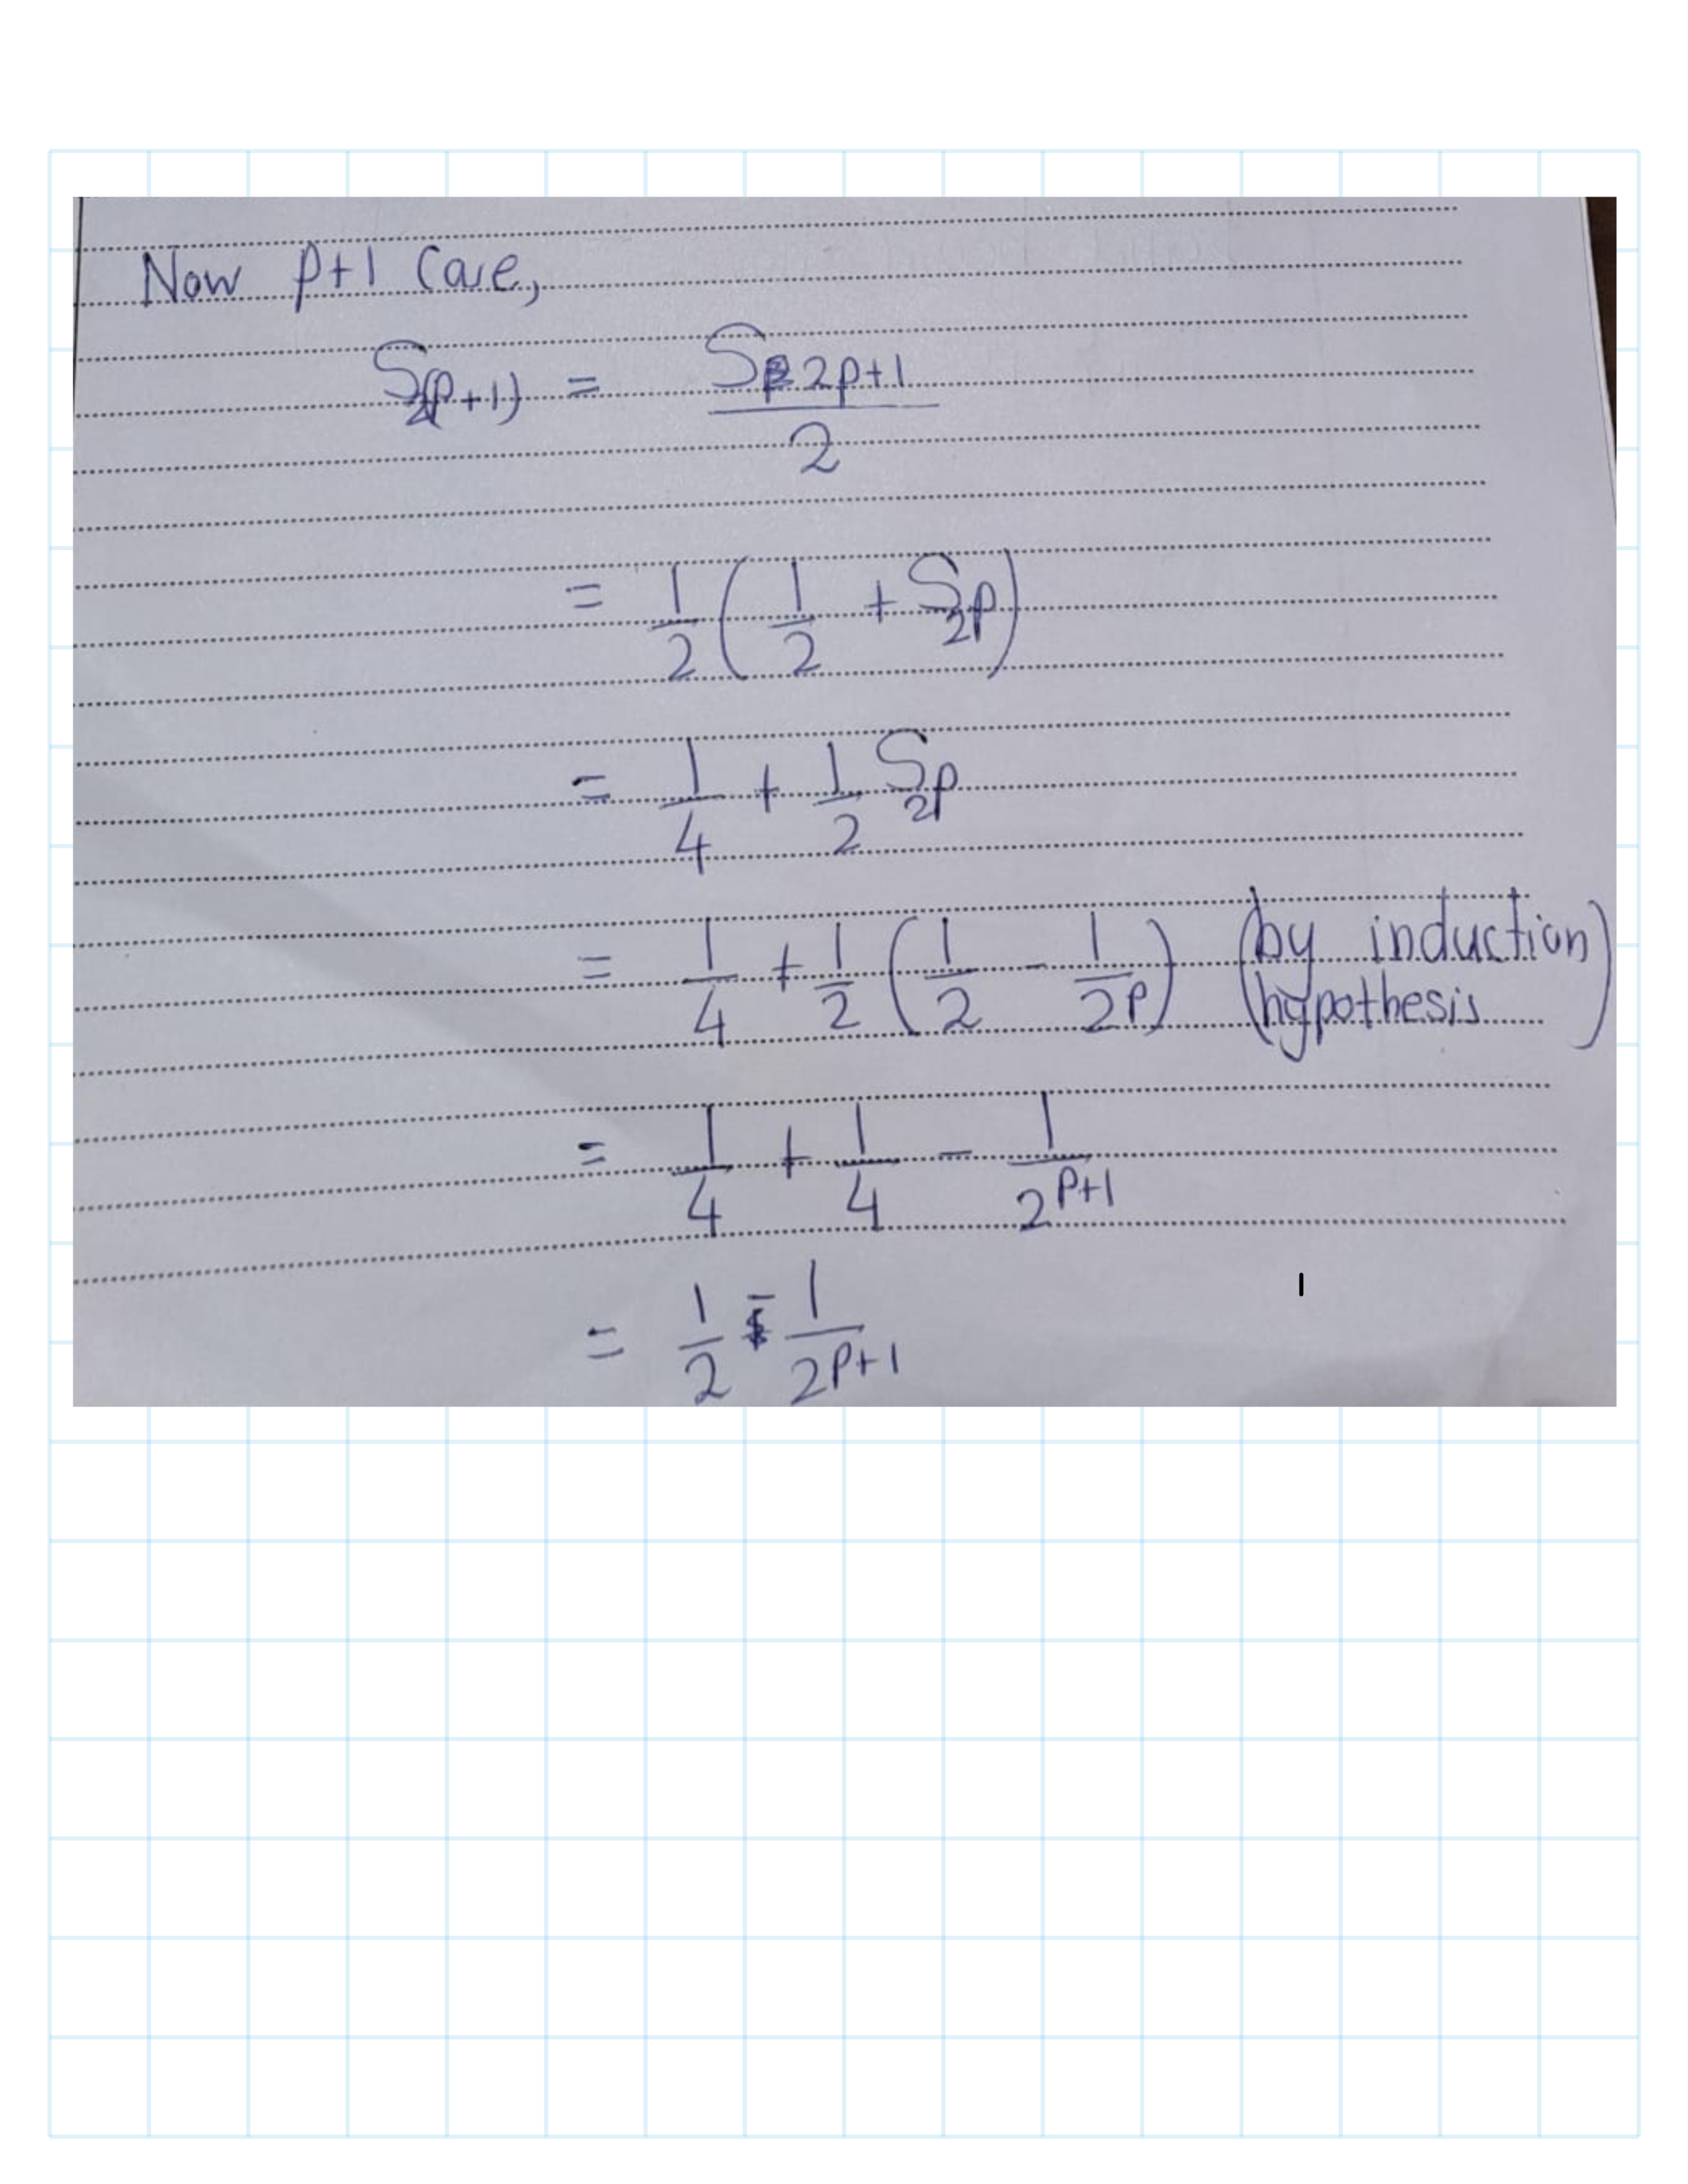 Now p+1 case,
S_{2(p+1)} = \frac{S_{2p+1}}{2}
= \frac{1}{2} \left( \frac{1}{2} + S_{2p} \right)
= \frac{1}{4} + \frac{1}{2} S_{2p}
= \frac{1}{4} + \frac{1}{2} \left( \frac{1}{2} - \frac{1}{2^p} \right) (by induction hypothesis)
= \frac{1}{4} + \frac{1}{4} - \frac{1}{2^{p+1}}
= \frac{1}{2} - \frac{1}{2^{p+1}}